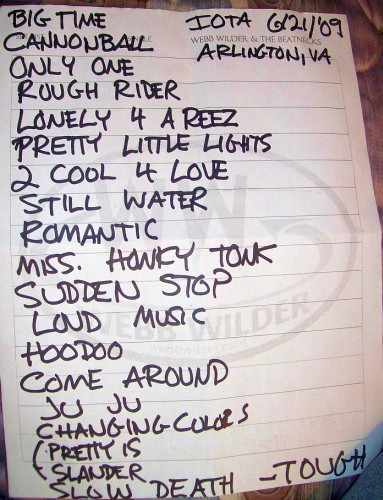 BIG TIME
IOTA 6/21/'09
WEBB WILDER & THE BEATNECKS
CANNONBALL
ARLINGTON, VA
ONLY ONE
ROUGH RIDER
LONELY 4 A REEZ
PRETTY LITTLE LIGHTS
2 COOL 4 LOVE
STILL WATER
ROMANTIC
WW
MISS. HONKY TONK
SUDDEN STOP
LOUD MUSIC
WEBB WILDER
HOODOO
COME AROUND
JU JU
CHANGING COLORS
(PRETTY IS
SLANDER
SLOW DEATH - TOUGH